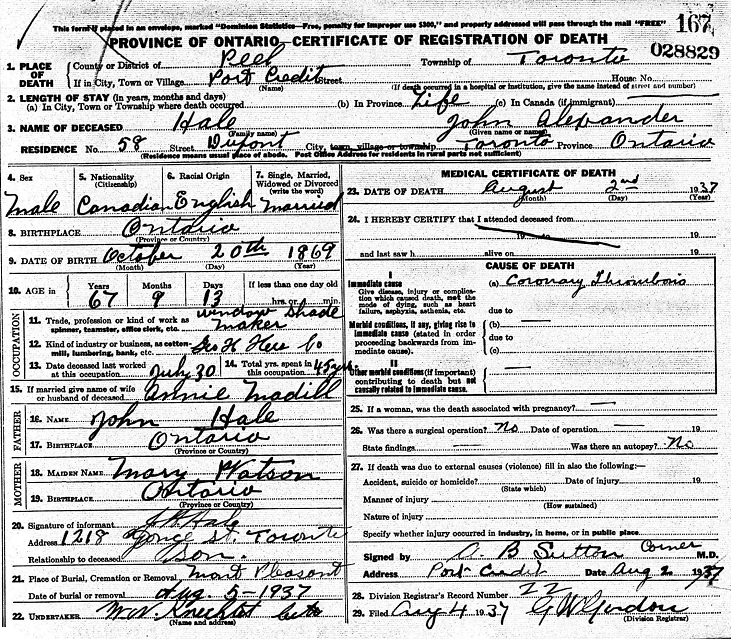 This form if placed in an envelope, marked "Dominion Statistics—Free, penalty for improper use $300," and properly addressed will pass through the mail "FREE"
167
PROVINCE OF ONTARIO—CERTIFICATE OF REGISTRATION OF DEATH
028829
1. PLACE OF DEATH
County or District of Peel Township of Toronto
If in City, Town or Village Port Credit Street House No.
(Name) (If death occurred in a hospital or institution, give the name instead of street and number)
2. LENGTH OF STAY (in years, months and days)
(a) In City, Town or Township where death occurred (b) In Province Life (c) In Canada (if immigrant)
3. NAME OF DECEASED Hale John Alexander
(Family name) (Given name or names)
RESIDENCE No. 58 Street Dupont City, town, village or township Toronto Province Ontario
(Residence means usual place of abode. Post Office Address for residents in rural parts not sufficient)
4. Sex Male
5. Nationality (Citizenship) Canadian
6. Racial Origin English
7. Single, Married, Widowed or Divorced (write the word) Married
8. BIRTHPLACE Ontario
(Province or Country)
9. DATE OF BIRTH October 20th 1869
(Month) (Day) (Year)
10. AGE in Years 67 Months 9 Days 13 If less than one day old hrs. or min.
OCCUPATION
11. Trade, profession or kind of work as spinner, teamster, office clerk, etc. Window Shade Maker
12. Kind of industry or business, as cotton-mill, lumbering, bank, etc. Geo H Hees Co
13. Date deceased last worked at this occupation July 30
14. Total yrs. spent in this occupation 45 yrs.
15. If married give name of wife or husband of deceased Annie Madill
FATHER
16. NAME John Hale
17. BIRTHPLACE Ontario
(Province or Country)
MOTHER
18. MAIDEN NAME Mary Watson
19. BIRTHPLACE Ontario
(Province or Country)
20. Signature of informant Hale
Address 1218 Yonge St. Toronto
Relationship to deceased Son.
21. Place of Burial, Cremation or Removal Mont Pleasant
Date of burial or removal Aug. 5-1937
22. UNDERTAKER
(Name and address)
MEDICAL CERTIFICATE OF DEATH
23. DATE OF DEATH August 2nd 1937
(Month) (Day) (Year)
24. I HEREBY CERTIFY that I attended deceased from
19 to 19
and last saw h alive on 19
CAUSE OF DEATH
I
Immediate cause (a) Coronary Thrombosis
Give disease, injury or complication which caused death, not the mode of dying, such as heart failure, asphyxia, asthenia, etc.
due to
Morbid conditions, if any, giving rise to immediate cause (stated in order proceeding backwards from immediate cause).
(b) —
due to
(c)
II
Other morbid conditions (if important) contributing to death but not causally related to immediate cause. —
25. If a woman, was the death associated with pregnancy? —
26. Was there a surgical operation? No Date of operation — 19
State findings — Was there an autopsy? No
27. If death was due to external causes (violence) fill in also the following:—
Accident, suicide or homicide? Date of injury 19
(State which)
Manner of injury
(How sustained)
Nature of injury
Specify whether injury occurred in industry, in home, or in public place.
Signed by B Sutton Corner M.D.
Address Port Credit Date Aug 2 1937
28. Division Registrar's Record Number 22
29. Filed Aug 4 1937 G W Gordon
(Division Registrar)